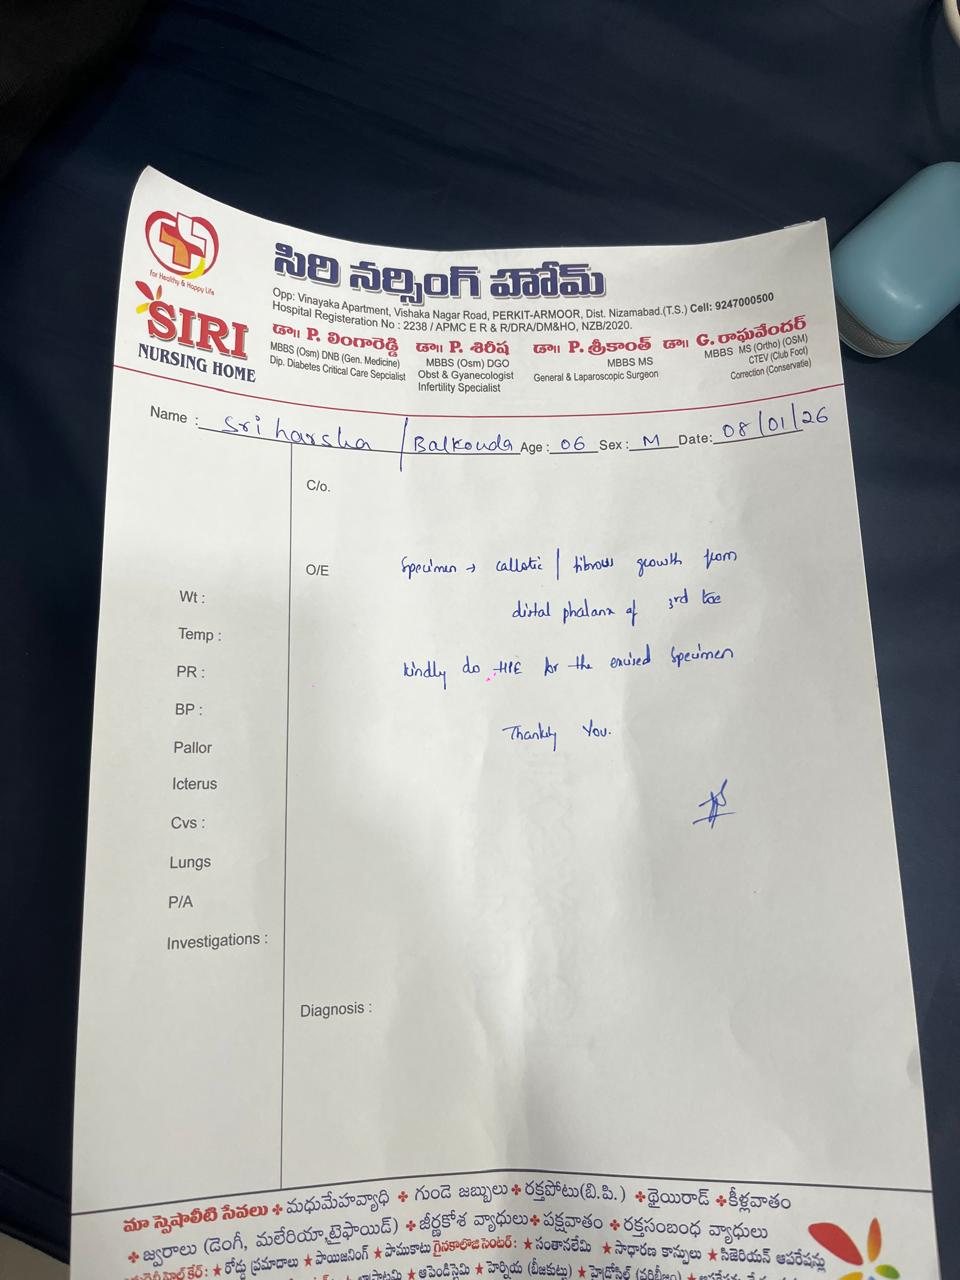 సిరి నర్సింగ్ హోమ్
for Healthy & Happy Life
SIRI
NURSING HOME
Opp: Vinayaka Apartment, Vishaka Nagar Road, PERKIT-ARMOOR, Dist. Nizamabad.(T.S.) Cell: 9247000500
Hospital Registeration No : 2238 / APMC E R & R/DRA/DM&HO, NZB/2020.
డా॥ P. లింగారెడ్డి
MBBS (Osm) DNB (Gen. Medicine)
Dip. Diabetes Critical Care Sepcialist
డా॥ P. శిరీష
MBBS (Osm) DGO
Obst & Gyanecologist
Infertility Specialist
డా॥ P. శ్రీకాంత్
MBBS MS
General & Laparoscopic Surgeon
డా॥ G. రాఘవేందర్
MBBS MS (Ortho) (OSM)
CTEV (Club Foot)
Correction (Conservatie)
Name : Sri harsha / Balkonda Age : 06 Sex : M Date: 08/01/26
C/o.
O/E Specimen → callotic / fibrous growth from
distal phalanx of 3rd toe
Kindly do HPE for the excised specimen
Thanking You.
Wt :
Temp :
PR :
BP :
Pallor
Icterus
Cvs :
Lungs
P/A
Investigations :
Diagnosis :
మా స్పెషాలిటీ సేవలు ✤ మధుమేహవ్యాధి ✤ గుండె జబ్బులు ✤ రక్తపోటు(బి.పి.) ✤ థైయిరాడ్ ✤ కీళ్లవాతం
✤ జ్వరాలు (డెంగీ, మలేరియా,టైఫాయిడ్) ✤ జీర్ణకోశ వ్యాధులు ✤ పక్షవాతం ✤ రక్తసంబంధ వ్యాధులు
★ రోడ్డు ప్రమాదాలు ★ పాయిజనింగ్ ★ పాముకాటు గైనకాలాజి సెంటర్: ★ సంతానలేమి ★ సాధారణ కాన్పులు ★ సిజెరియన్ ఆపరేషన్లు
★ అపెండిసైటిస్ ★ హెర్నియ (బీజకుట్టు) ★